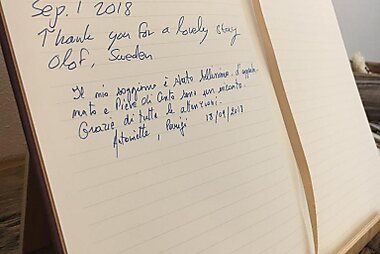 Sep. 1 2018
Thank you for a lovely stay
Olof, Sweden
Il mio soggiorno è stato bellissimo. L'apparta
mento e Pieve di Cento sono un incanto.
Grazie di tutte le attenzioni.
Antoinette, Parigi 18/09/2018